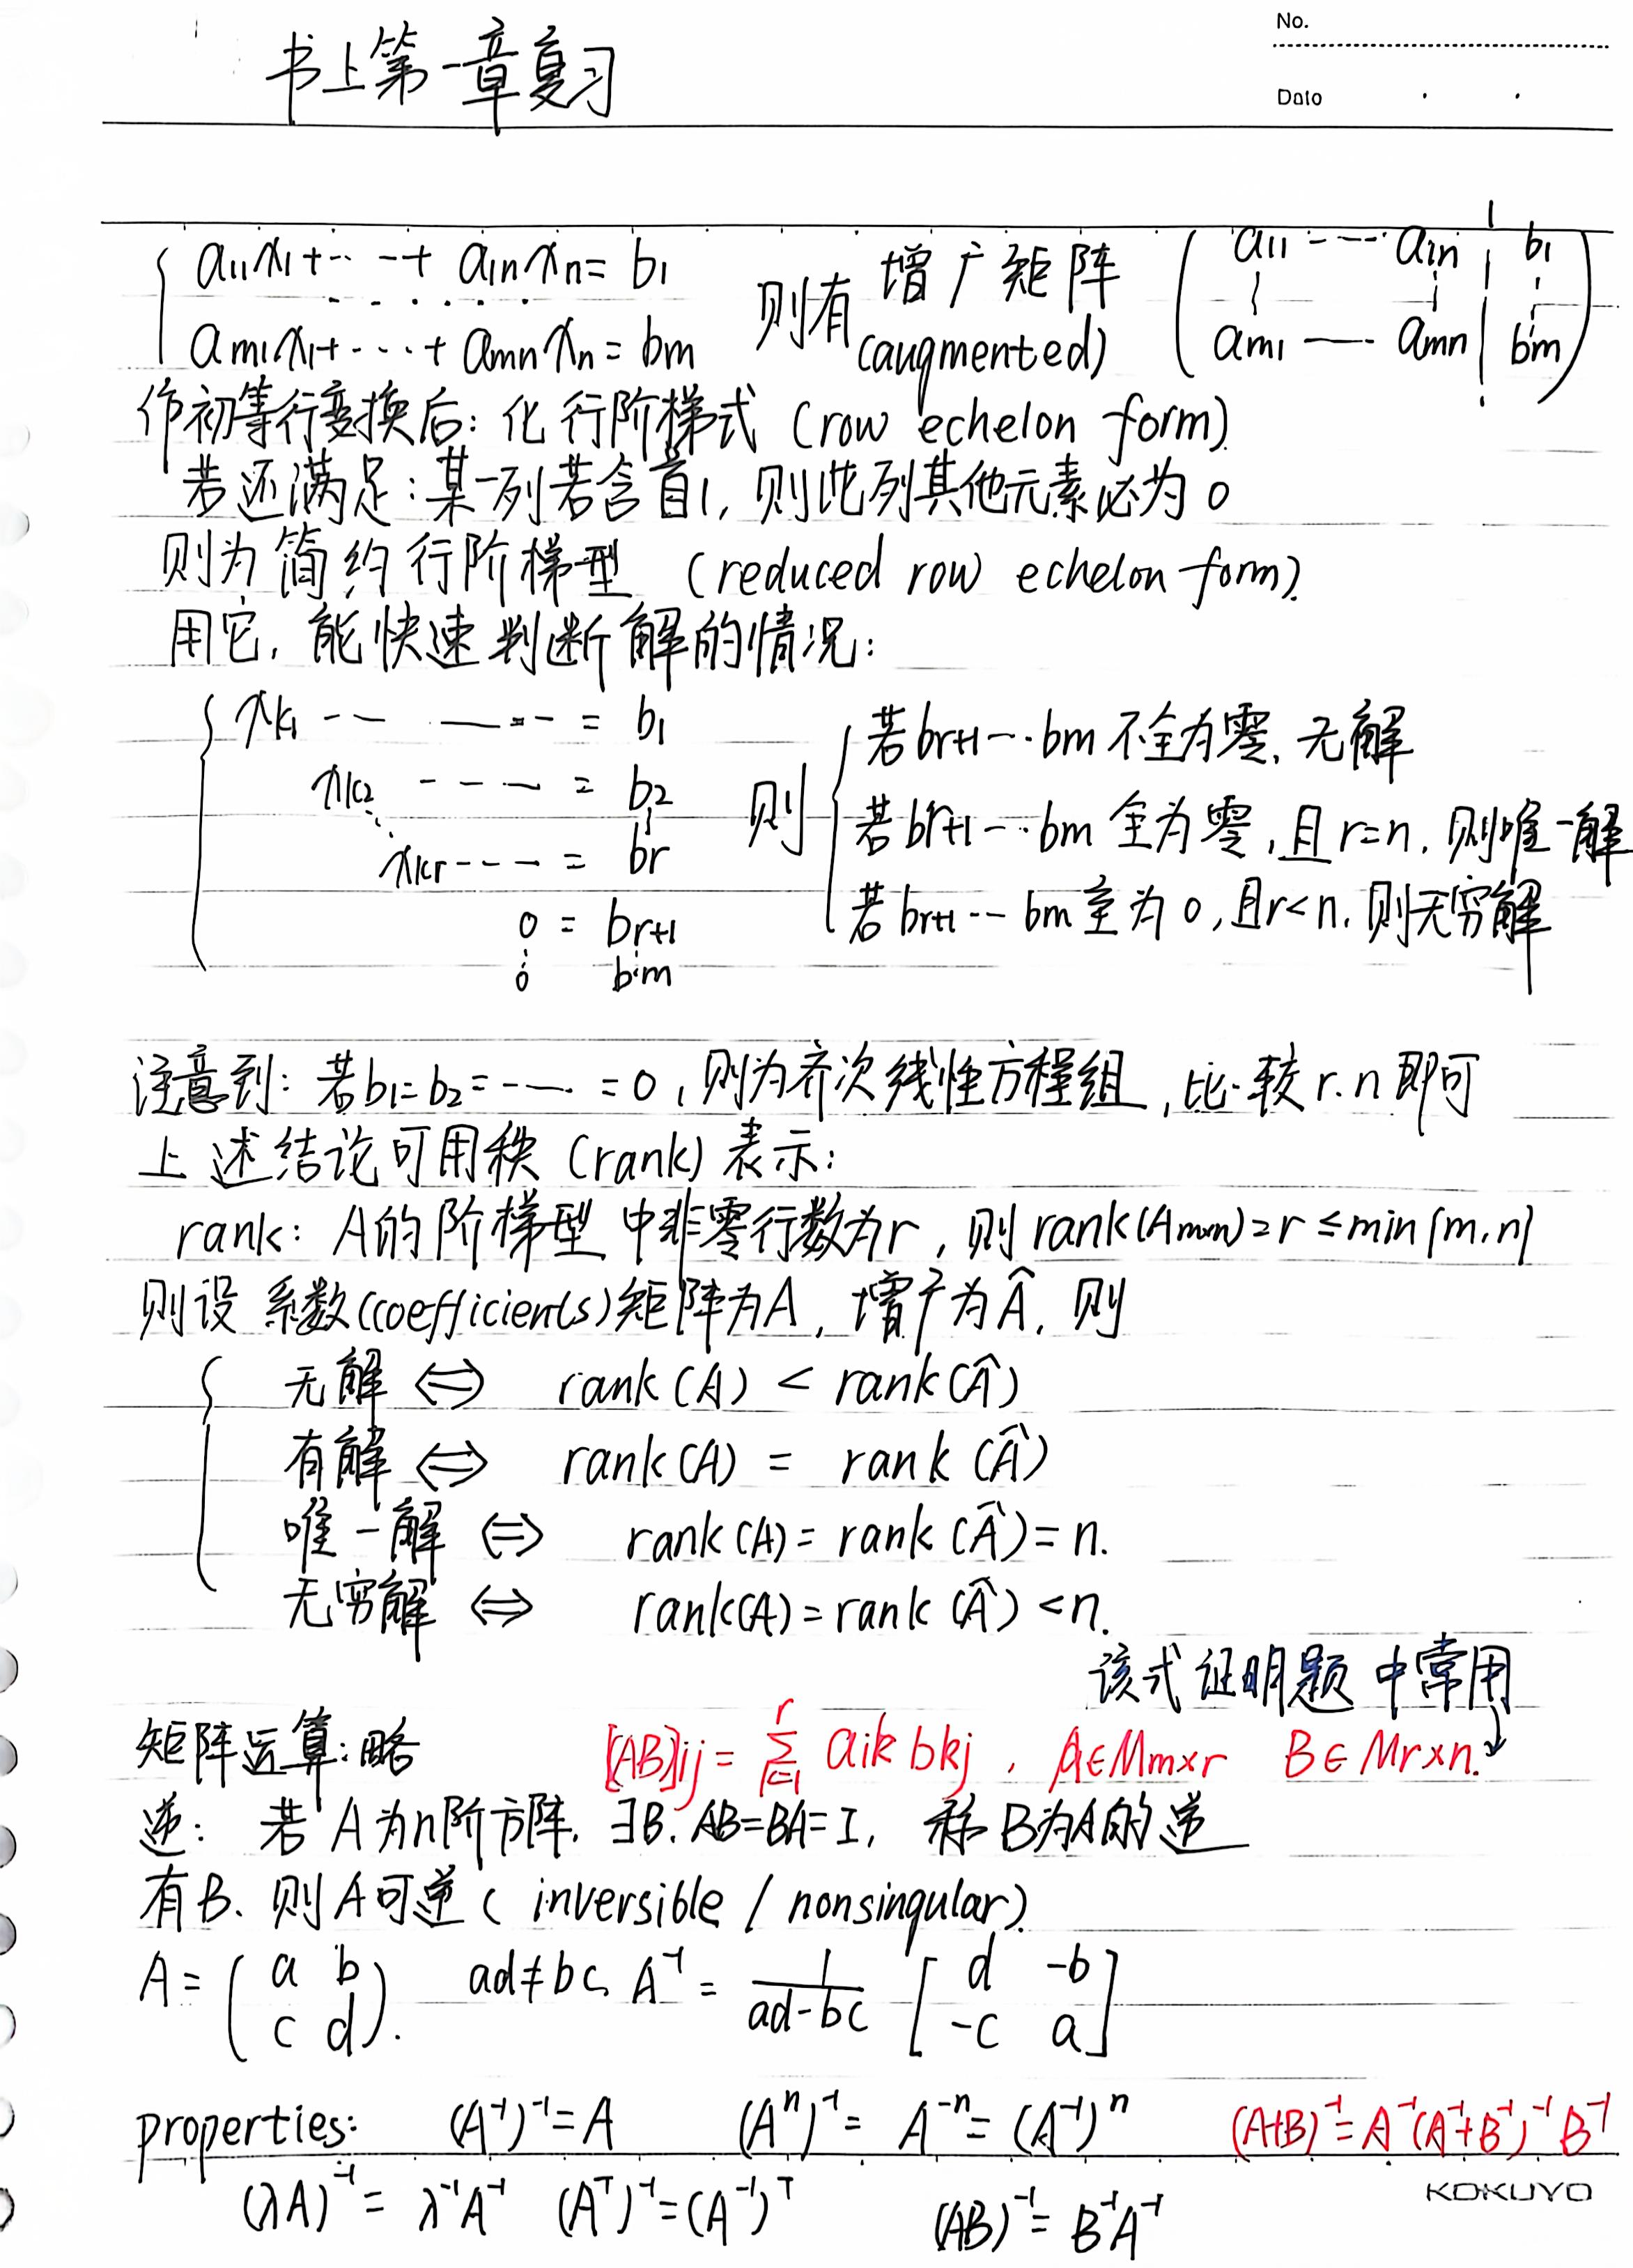 No.
Date
书上第一章复习
a11x1+-- -+ a1nxn= b1
.......
am1x1+----+ amnxn= bm
则有 增广矩阵
(augmented)
a11 ---- a1n | b1
am1 —— amn | bm
作初等行变换后: 化行阶梯式 (row echelon form)
若还满足:某一列若含首1, 则此列其他元素必为0
则为简约行阶梯型 (reduced row echelon form).
用它, 能快速判断解的情况:
xk1 -- ---- = b1
xk2 ---- = b2
xkr---- = br
0 = br+1
0 bm
则
若br+1--·bm不全为零, 无解
若br+1--·bm 全为零, 且r=n, 则唯一解
若br+1-- bm全为0, 且r<n. 则无穷解
注意到: 若b1=b2=---- =0, 则为齐次线性方程组, 比较r.n即可
上述结论可用秩 (rank) 表示:
rank: A的阶梯型中非零行数为r, 则rank(Am×n)=r ≤min{m,n}
则设 系数(coefficients)矩阵为A, 增广为Â, 则
无解 ⇔ rank(A) < rank(Â)
有解 ⇔ rank(A) = rank (Â)
唯一解 ⇔ rank(A)= rank (Â)=n.
无穷解 ⇔ rank(A)=rank (Â) <n.
该式证明题中常用
矩阵运算:略 [AB]ij = Σ(k=1→r) aik bkj , A∈Mm×r B∈Mr×n.
逆: 若A为n阶方阵. ∃B. AB=BA=I, 称B为A的逆
有B、则A可逆 ( inversible / nonsingular)
A= (a b
c d). ad≠bc, A⁻¹ = 1/(ad-bc) [d -b
-c a]
properties: (A⁻¹)⁻¹=A (Aⁿ)⁻¹= A⁻ⁿ= (A⁻¹)ⁿ (A+B)⁻¹=A⁻¹(A⁻¹+B⁻¹)⁻¹B⁻¹
(λA)⁻¹= λ⁻¹A⁻¹ (Aᵀ)⁻¹=(A⁻¹)ᵀ (AB)⁻¹= B⁻¹A⁻¹
KOKUYO